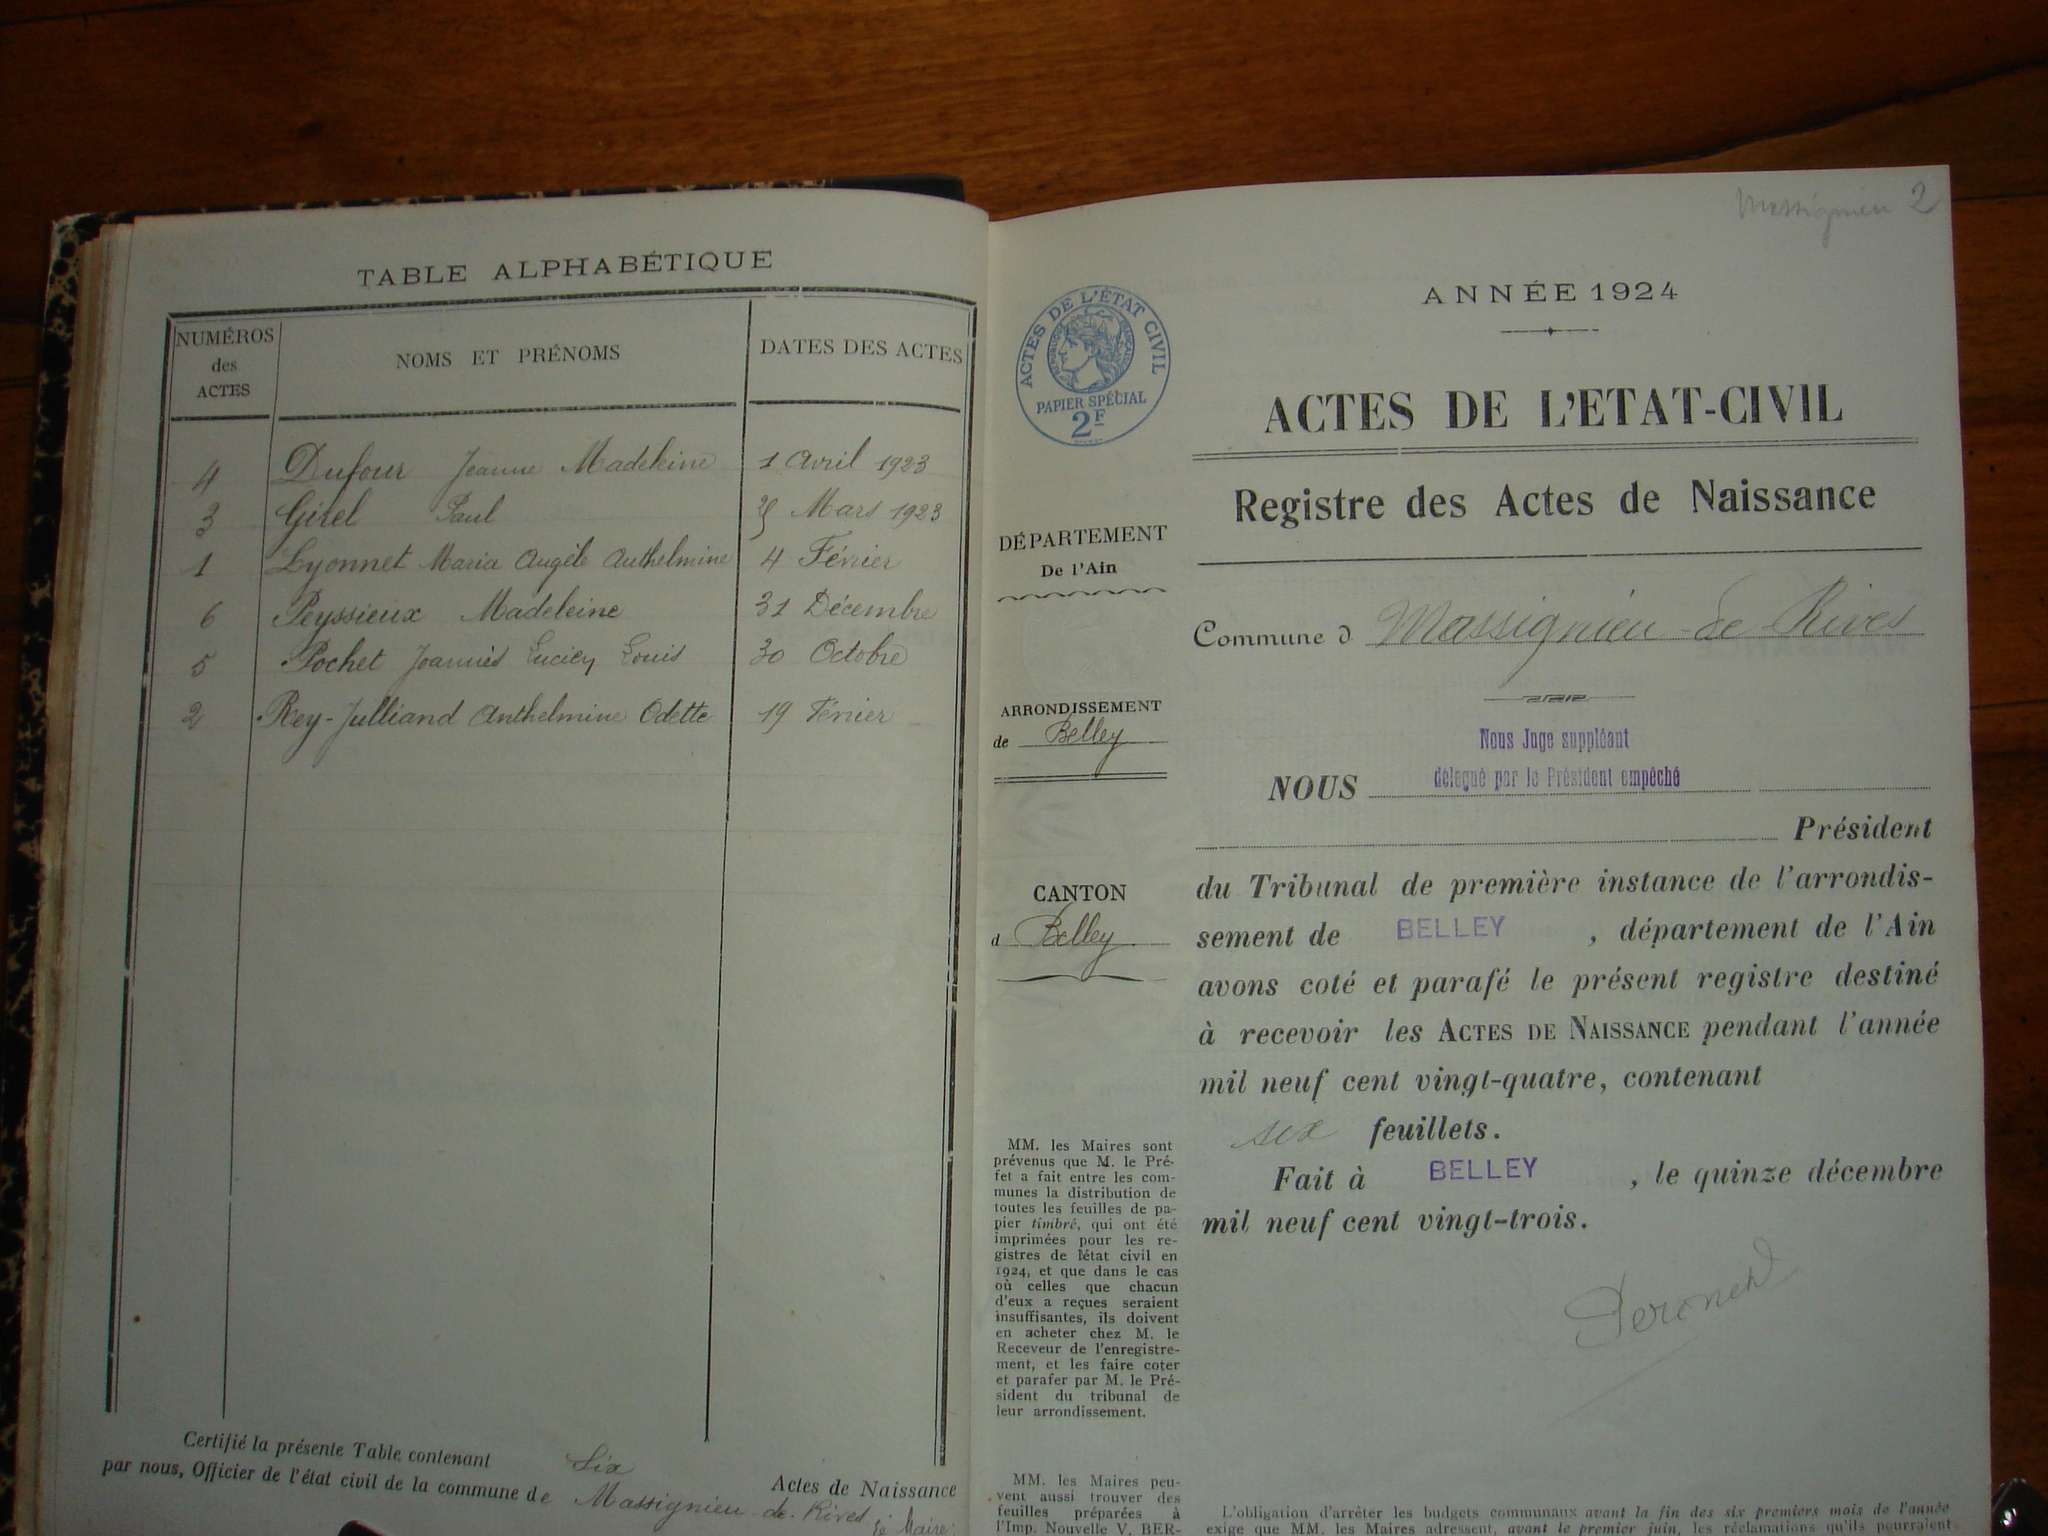 TABLE ALPHABÉTIQUE
NUMÉROS
des
ACTES
NOMS ET PRÉNOMS
DATES DES ACTES
4 Dufour Jeanne Madeleine 1 Avril 1923
3 Gitel Paul 25 Mars 1923
1 Lyonnet Maria Angèle Anthelmine 4 Février
6 Peyssieux Madeleine 31 Décembre
5 Pochet Joannès Lucien Louis 30 Octobre
2 Rey-Julliand Anthelmine Odette 19 Février
Certifié la présente Table contenant Six Actes de Naissance
par nous, Officier de l'état civil de la commune de Massignieu-de-Rives
Maire
Massignieu 2
ANNÉE 1924
ACTES DE L'ÉTAT CIVIL
RÉPUBLIQUE FRANÇAISE
PAPIER SPÉCIAL
2F
ACTES DE L'ETAT-CIVIL
Registre des Actes de Naissance
DÉPARTEMENT
De l'Ain
Commune d Massignieu-de Rives
ARRONDISSEMENT
de Belley
Nous Juge suppléant
délégué par le Président empêché
NOUS
Président
du Tribunal de première instance de l'arrondis-
sement de BELLEY, département de l'Ain
avons coté et parafé le présent registre destiné
à recevoir les ACTES DE NAISSANCE pendant l'année
mil neuf cent vingt-quatre, contenant
six feuillets.
Fait à BELLEY, le quinze décembre
mil neuf cent vingt-trois.
CANTON
d Belley
MM. les Maires sont
prévenus que M. le Pré-
fet a fait entre les com-
munes la distribution de
toutes les feuilles de pa-
pier timbré, qui ont été
imprimées pour les re-
gistres de l'état civil en
1924, et que dans le cas
où celles que chacun
d'eux a reçues seraient
insuffisantes, ils doivent
en acheter chez M. le
Receveur de l'enregistre-
ment, et les faire coter
et parafer par M. le Pré-
sident du tribunal de
leur arrondissement.
MM. les Maires peu-
vent aussi trouver des
feuilles préparées à
l'Imp. Nouvelle V. BER-
L'obligation d'arrêter les budgets communaux avant la fin des six premiers mois de l'année
exige que MM. les Maires adressent, avant le premier juin, les réclamations qu'ils pourraient